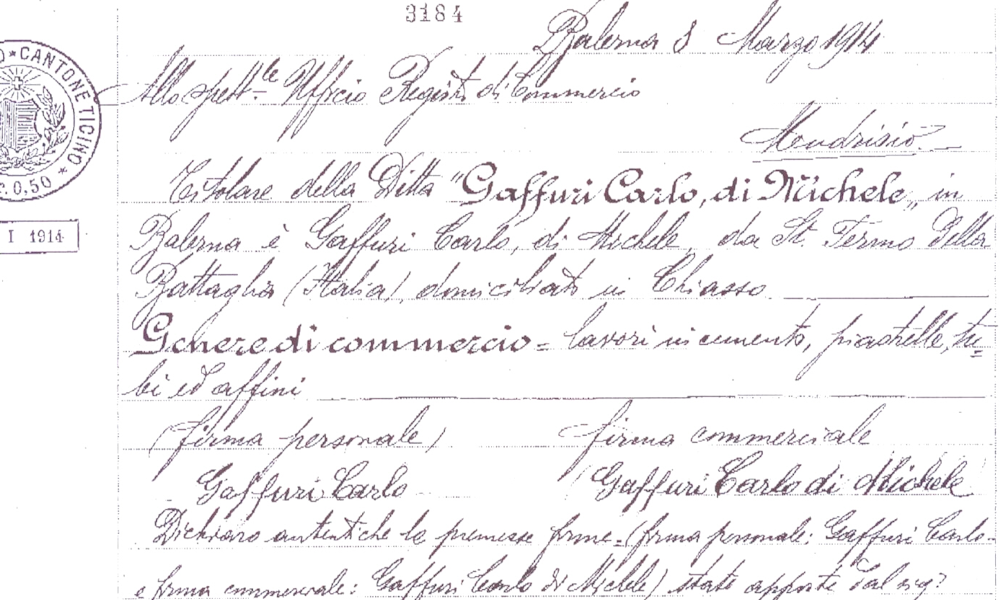 3184
Balerna 8 Marzo 1914
Allo spett.le Ufficio Registro di Commercio
Mendrisio.
CANTONE TICINO
C. 0,50
I 1914
Titolare della Ditta "Gaffuri Carlo, di Michele" in
Balerna è Gaffuri Carlo, di Michele, da St. Fermo Della
Battaglia (Italia), domiciliato in Chiasso
Genere di commercio = lavori in cemento, piastrelle, tu=
bi ed affini
(firma personale) firma commerciale
Gaffuri Carlo Gaffuri Carlo di Michele
Dichiaro autentiche le premesse firme = (firma personale: Gaffuri Carlo -
e firma commerciale: Gaffuri Carlo di Michele) state apposte dal sig.